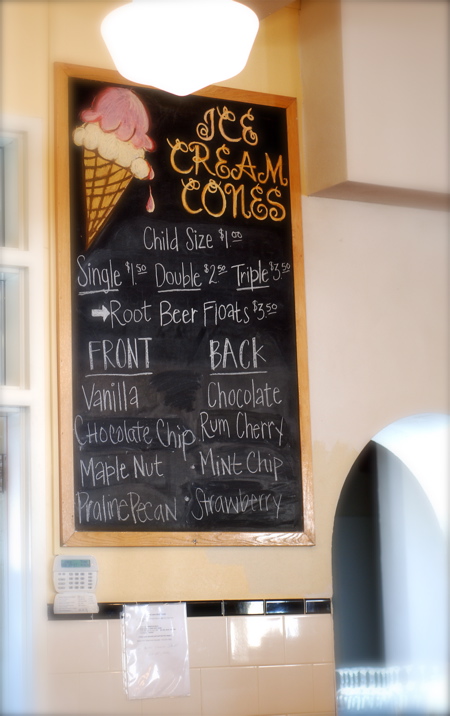 ICE
CREAM
CONES
Child Size $1.00
Single $1.50 Double $2.50 Triple $3.50
Root Beer Floats $3.50
FRONT BACK
Vanilla Chocolate
Chocolate Chip Rum Cherry
Maple Nut Mint Chip
Praline Pecan Strawberry